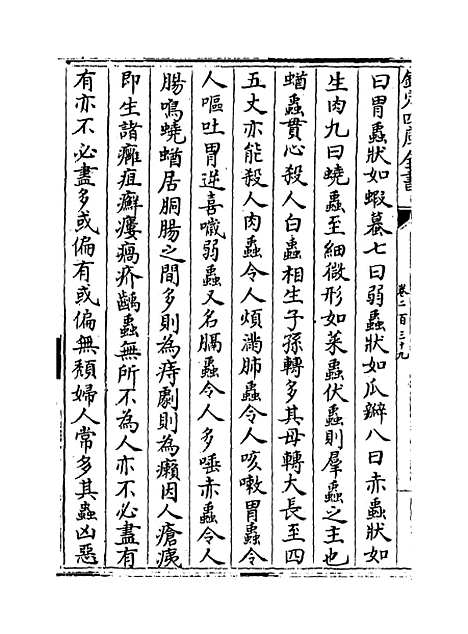 欽定四庫全書
卷二百三十九
曰胃蟲狀如蝦蟇七曰弱蟲狀如瓜瓣八曰赤蟲狀如
生肉九曰蟯蟲至細微形如菜蟲伏蟲則羣蟲之主也
蛕蟲貫心殺人白蟲相生子孫轉多其母轉大長至四
五丈亦能殺人肉蟲令人煩滿肺蟲令人咳嗽胃蟲令
人嘔吐胃逆喜噦弱蟲又名膈蟲令人多唾赤蟲令人
腸鳴蟯蛕居胴腸之間多則為痔劇則為癩因人瘡痍
即生諸癰疽癬瘻瘑疥齲蟲無所不為人亦不必盡有
有亦不必盡多或偏有或偏無類婦人常多其蟲凶惡